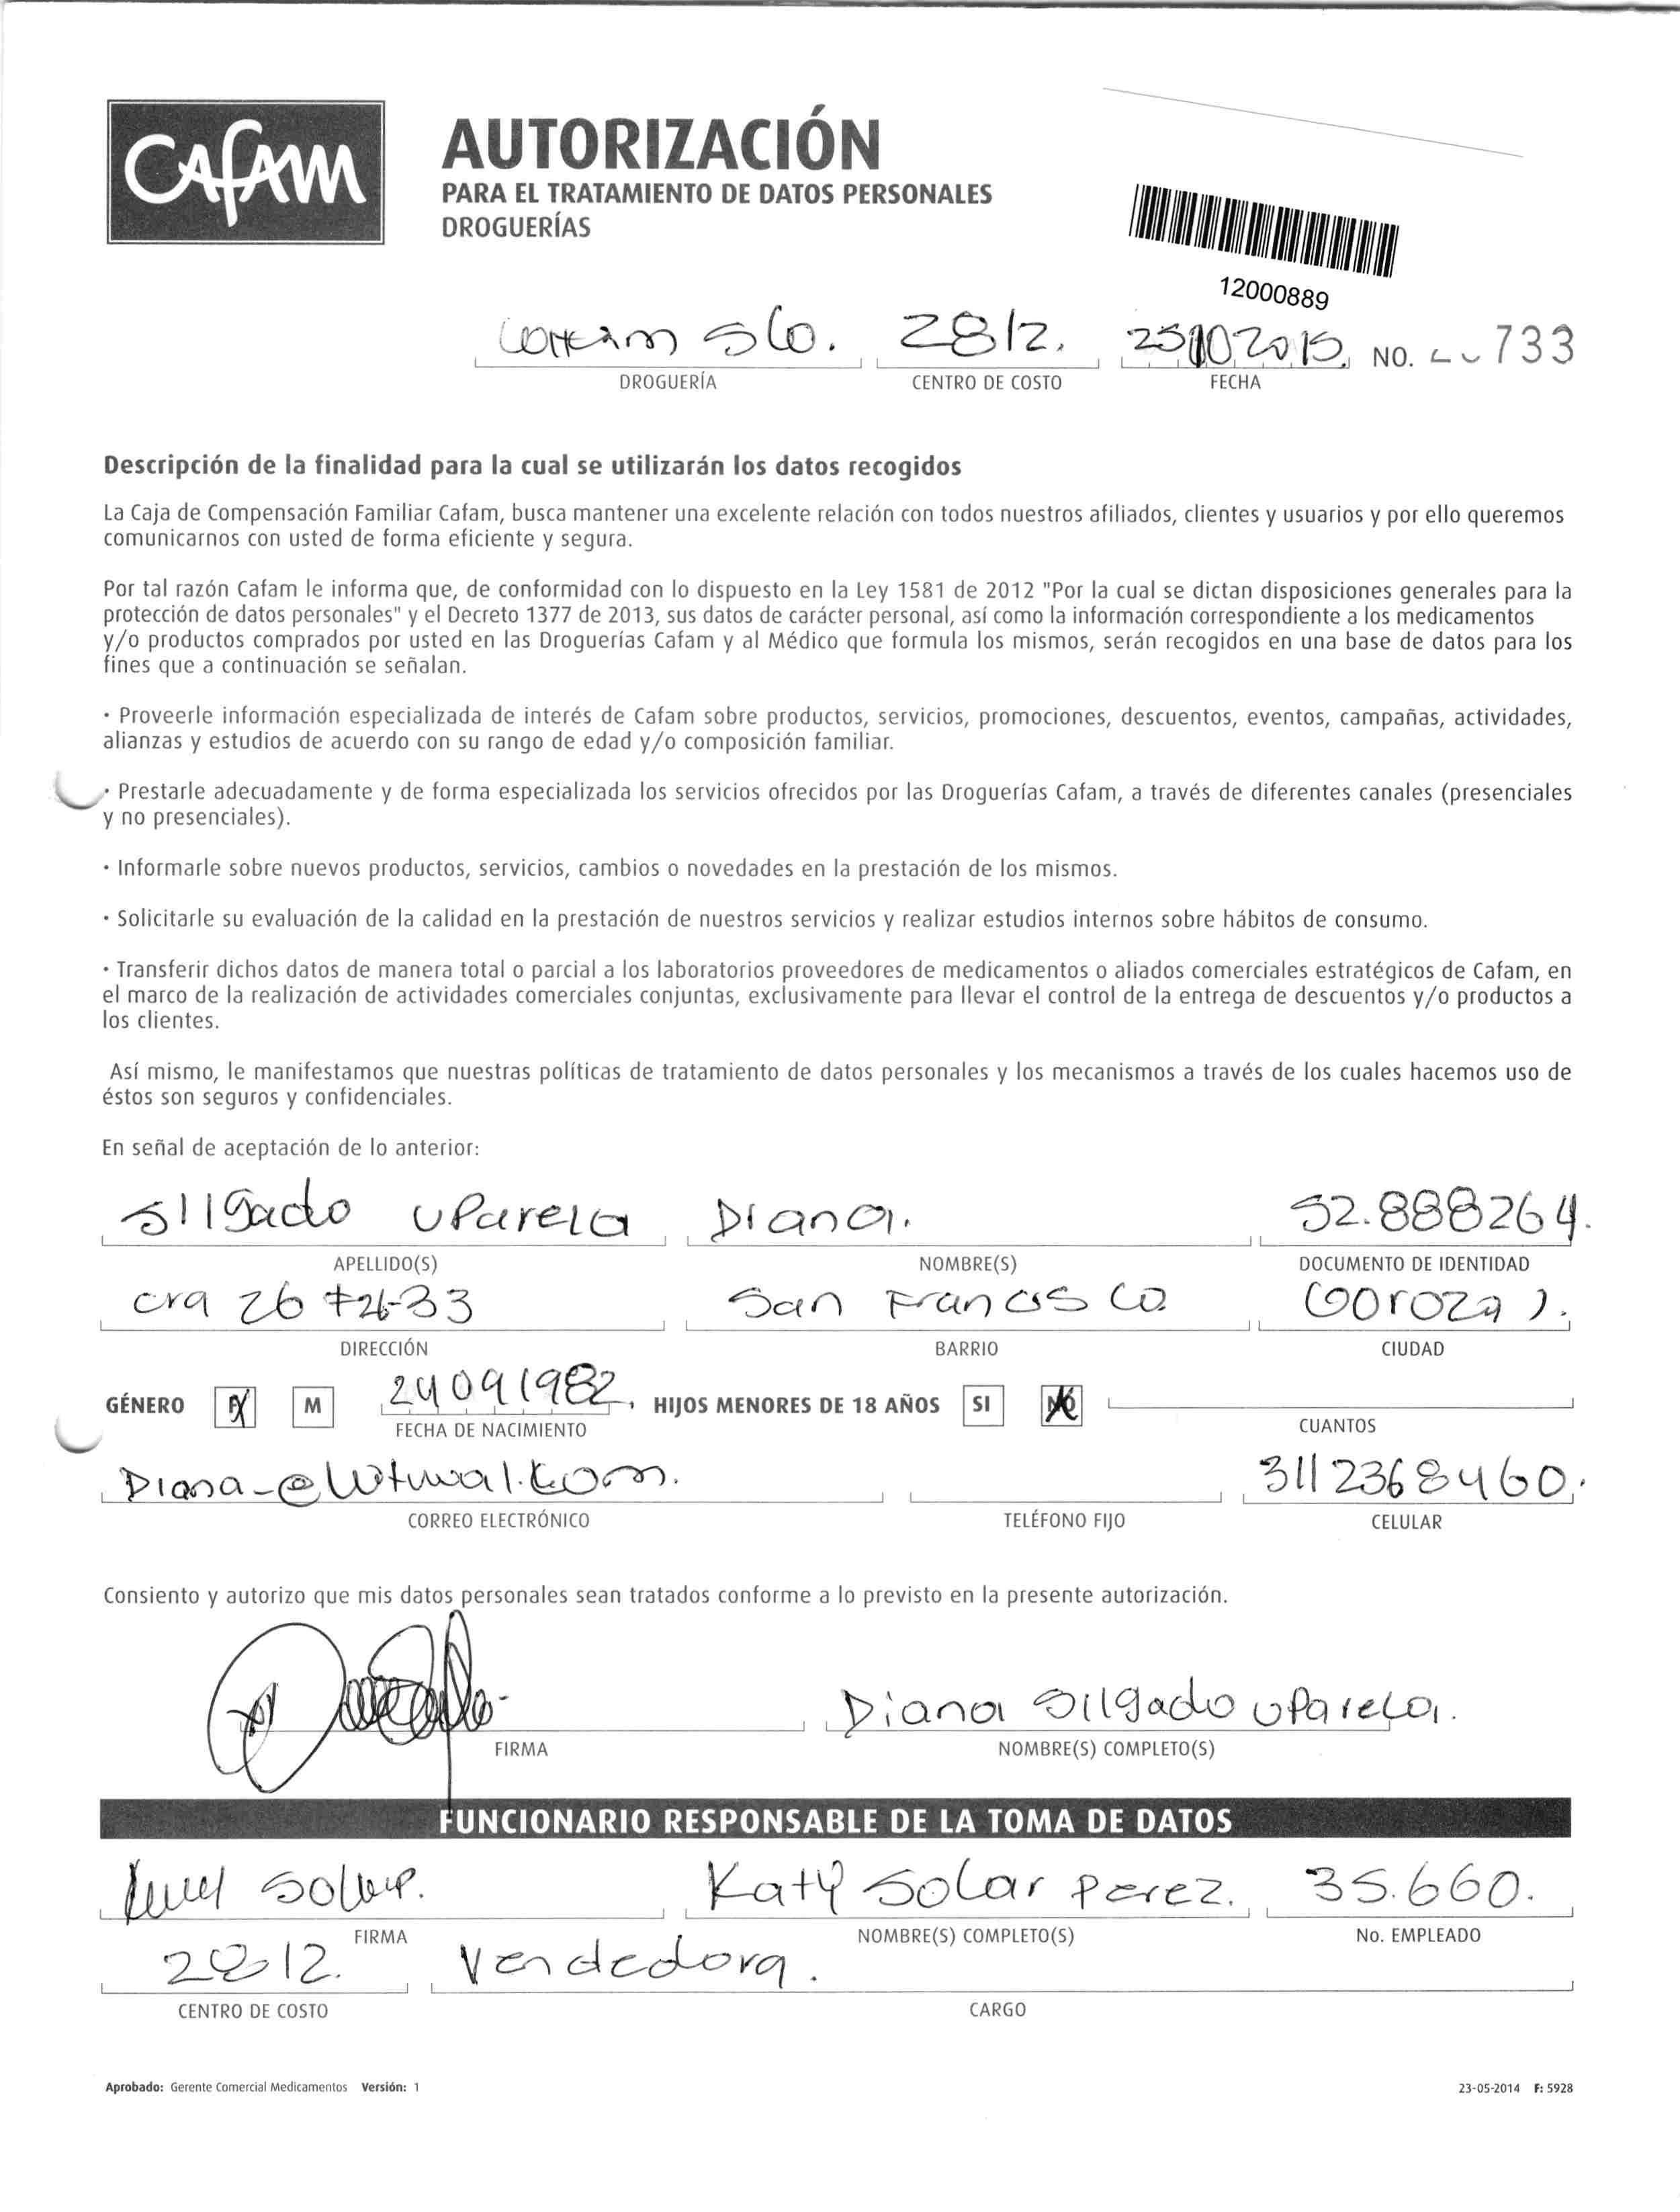 Cafam
AUTORIZACIÓN
PARA EL TRATAMIENTO DE DATOS PERSONALES
DROGUERÍAS
12000889
2812. 2015. NO. 733
DROGUERÍA CENTRO DE COSTO FECHA
Descripción de la finalidad para la cual se utilizarán los datos recogidos
La Caja de Compensación Familiar Cafam, busca mantener una excelente relación con todos nuestros afiliados, clientes y usuarios y por ello queremos
comunicarnos con usted de forma eficiente y segura.
Por tal razón Cafam le informa que, de conformidad con lo dispuesto en la Ley 1581 de 2012 "Por la cual se dictan disposiciones generales para la
protección de datos personales" y el Decreto 1377 de 2013, sus datos de carácter personal, así como la información correspondiente a los medicamentos
y/o productos comprados por usted en las Droguerías Cafam y al Médico que formula los mismos, serán recogidos en una base de datos para los
fines que a continuación se señalan.
· Proveerle información especializada de interés de Cafam sobre productos, servicios, promociones, descuentos, eventos, campañas, actividades,
alianzas y estudios de acuerdo con su rango de edad y/o composición familiar.
· Prestarle adecuadamente y de forma especializada los servicios ofrecidos por las Droguerías Cafam, a través de diferentes canales (presenciales
y no presenciales).
· Informarle sobre nuevos productos, servicios, cambios o novedades en la prestación de los mismos.
· Solicitarle su evaluación de la calidad en la prestación de nuestros servicios y realizar estudios internos sobre hábitos de consumo.
· Transferir dichos datos de manera total o parcial a los laboratorios proveedores de medicamentos o aliados comerciales estratégicos de Cafam, en
el marco de la realización de actividades comerciales conjuntas, exclusivamente para llevar el control de la entrega de descuentos y/o productos a
los clientes.
Así mismo, le manifestamos que nuestras políticas de tratamiento de datos personales y los mecanismos a través de los cuales hacemos uso de
éstos son seguros y confidenciales.
En señal de aceptación de lo anterior:
Silgado uParela Diana. 52.888264.
APELLIDO(S) NOMBRE(S) DOCUMENTO DE IDENTIDAD
cra 26 San Francisco Corozal.
DIRECCIÓN BARRIO CIUDAD
GÉNERO F M 24091982. HIJOS MENORES DE 18 AÑOS SI NO
FECHA DE NACIMIENTO CUANTOS
3112368460.
CORREO ELECTRÓNICO TELÉFONO FIJO CELULAR
Consiento y autorizo que mis datos personales sean tratados conforme a lo previsto en la presente autorización.
Diana Silgado uParela.
FIRMA NOMBRE(S) COMPLETO(S)
FUNCIONARIO RESPONSABLE DE LA TOMA DE DATOS
Katy Solar Perez. 35.660.
FIRMA NOMBRE(S) COMPLETO(S) No. EMPLEADO
2812. Vendedora.
CENTRO DE COSTO CARGO
Aprobado: Gerente Comercial Medicamentos Versión: 1 23-05-2014 F: 5928